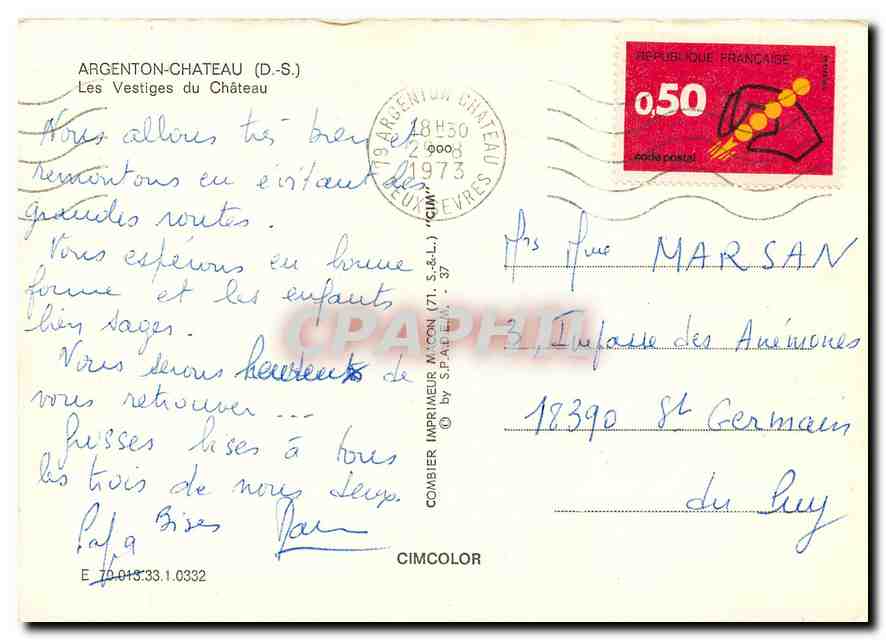 ARGENTON-CHATEAU (D.-S.)
Les Vestiges du Château
Nous allons très bien et
remontons en évitant des
grandes routes.
Vous espérons en bonne
forme et les enfants
bien sages.
Nous serons heureux de
vous retrouver ...
Grosses bises à tous
les trois de nous deux.
Papa Bises
E 79.013.33.1.0332
CIMCOLOR
COMBIER IMPRIMEUR MACON (71. S.-&-L.) "CIM"
© by S.P.A.D.E.M. - 37
79 ARGENTON CHATEAU
18H30
29-8
1973
DEUX-SEVRES
REPUBLIQUE FRANÇAISE
0,50
code postal
Mrs Mme MARSAN
3, Impasse des Anémones
18390 St Germain
du Puy
CPAPHIL